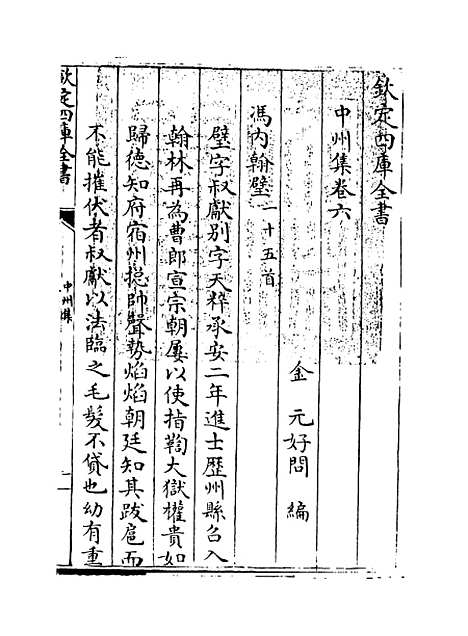 欽定四庫全書
中州集卷六
金 元好問 編
馮內翰璧二十五首
璧字叔獻別字天粹承安二年進士歷州縣召入
翰林再為曹郎宣宗朝屢以使指鞫大獄權貴如
歸德知府宿州總帥聲勢焰焰朝廷知其跋扈而
不能摧伏者叔獻以法臨之毛髮不貸也幼有重
欽定四庫全書
中州集